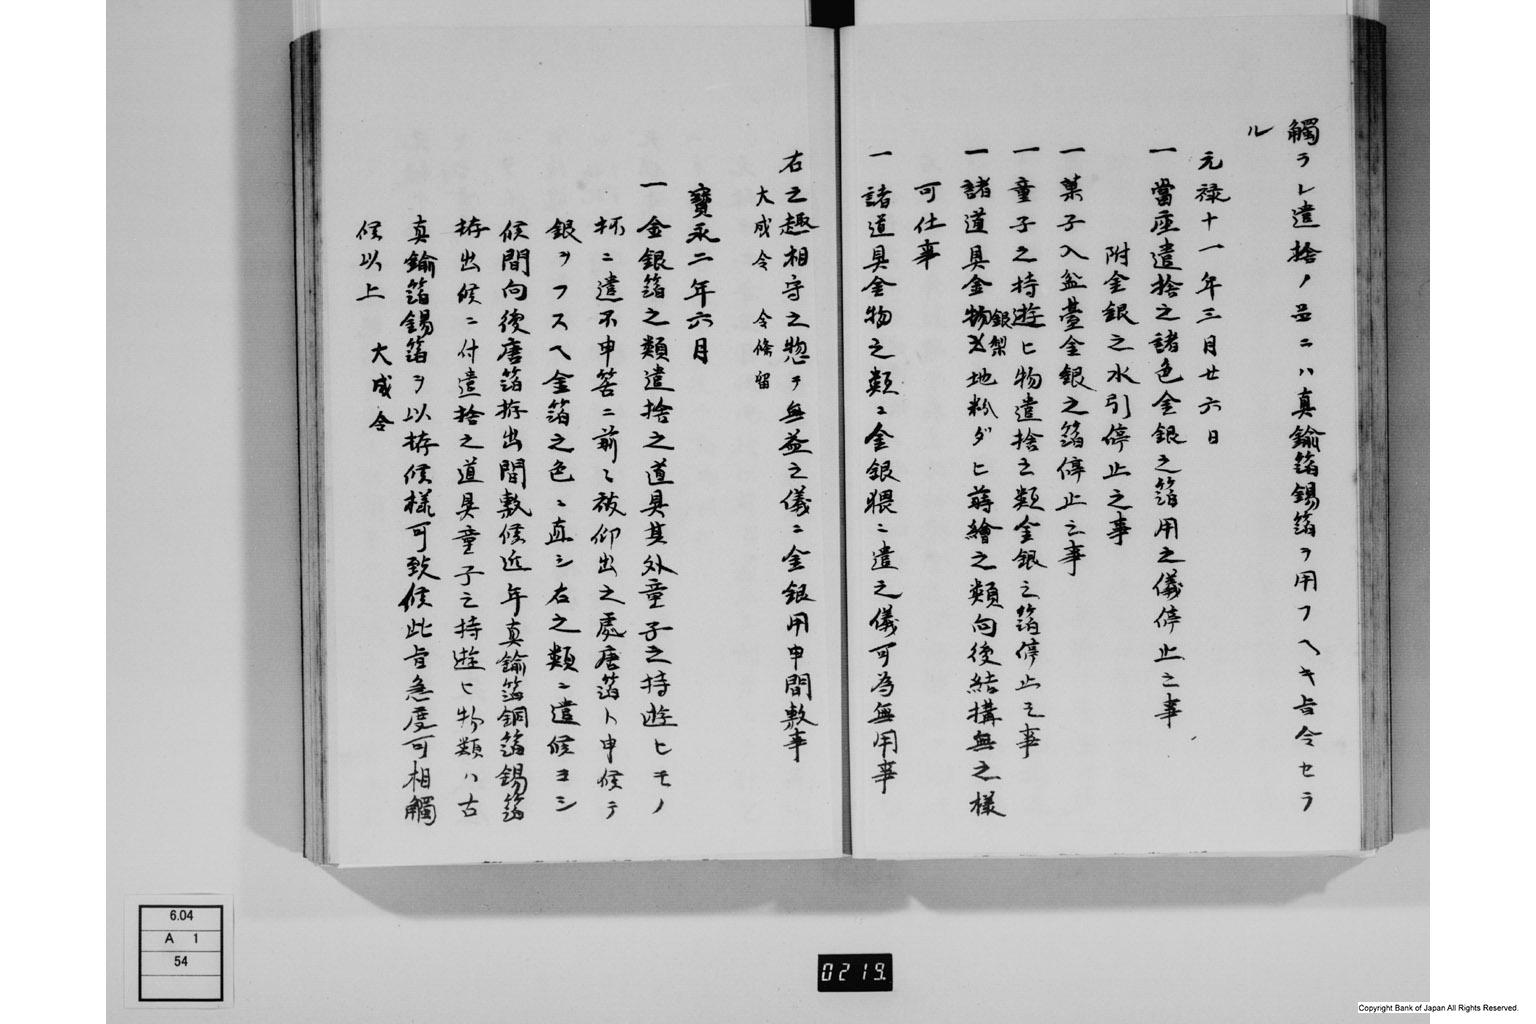 觸ラレ遣捨ノ品ニハ真鍮箔錫箔ヲ用フヘキ旨令セラ
ル
元禄十一年三月廿六日
一當座遣捨之諸色金銀之箔用之儀停止之事
附金銀之水引停止之事
一菓子入盆臺金銀之箔停止之事
一童子之持遊ヒ物遣捨之類金銀之箔停止之事
一諸道具金物銀梨地粉ダヒ蒔繪之類向後結搆無之様
可仕事
一諸道具金物之類ニ金銀猥ニ遣之儀可為無用事
右之趣相守之惣テ無益之儀ニ金銀用申間敷事
大成令 令條留
寶永二年六月
一金銀箔之類遣捨之道具其外童子之持遊ヒモノ
抔ニ遣不申筈ニ前々被仰出之處唐箔ト申候テ
銀ヲフスヘ金箔之色ニ直シ右之類ニ遣候ヨシ
候間向後唐箔拵出間敷候近年真鍮箔銅箔錫箔
拵出候ニ付遣捨之道具童子之持遊ヒ物類ハ右
真鍮箔錫箔ヲ以拵候様可致候此旨急度可相觸
候以上 大成令
6.04
A 1
54
0219.
Copyright Bank of Japan All Rights Reserved.